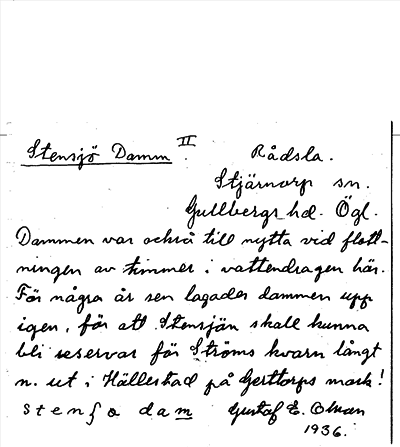 Stensjö Damm. II Rådsla.
Stjärnorp sn.
Gullbergs hd. Ögl.
Dammen var också till nytta vid flott-
ningen av timmer i vattendragen här.
För några år sen lagades dammen upp
igen, för att Stensjön skall kunna
bli reservar för Ströms kvarn långt
n. ut i Hällestad på Gerttorps mark!
stenʃo dam Gustaf E.
1936.